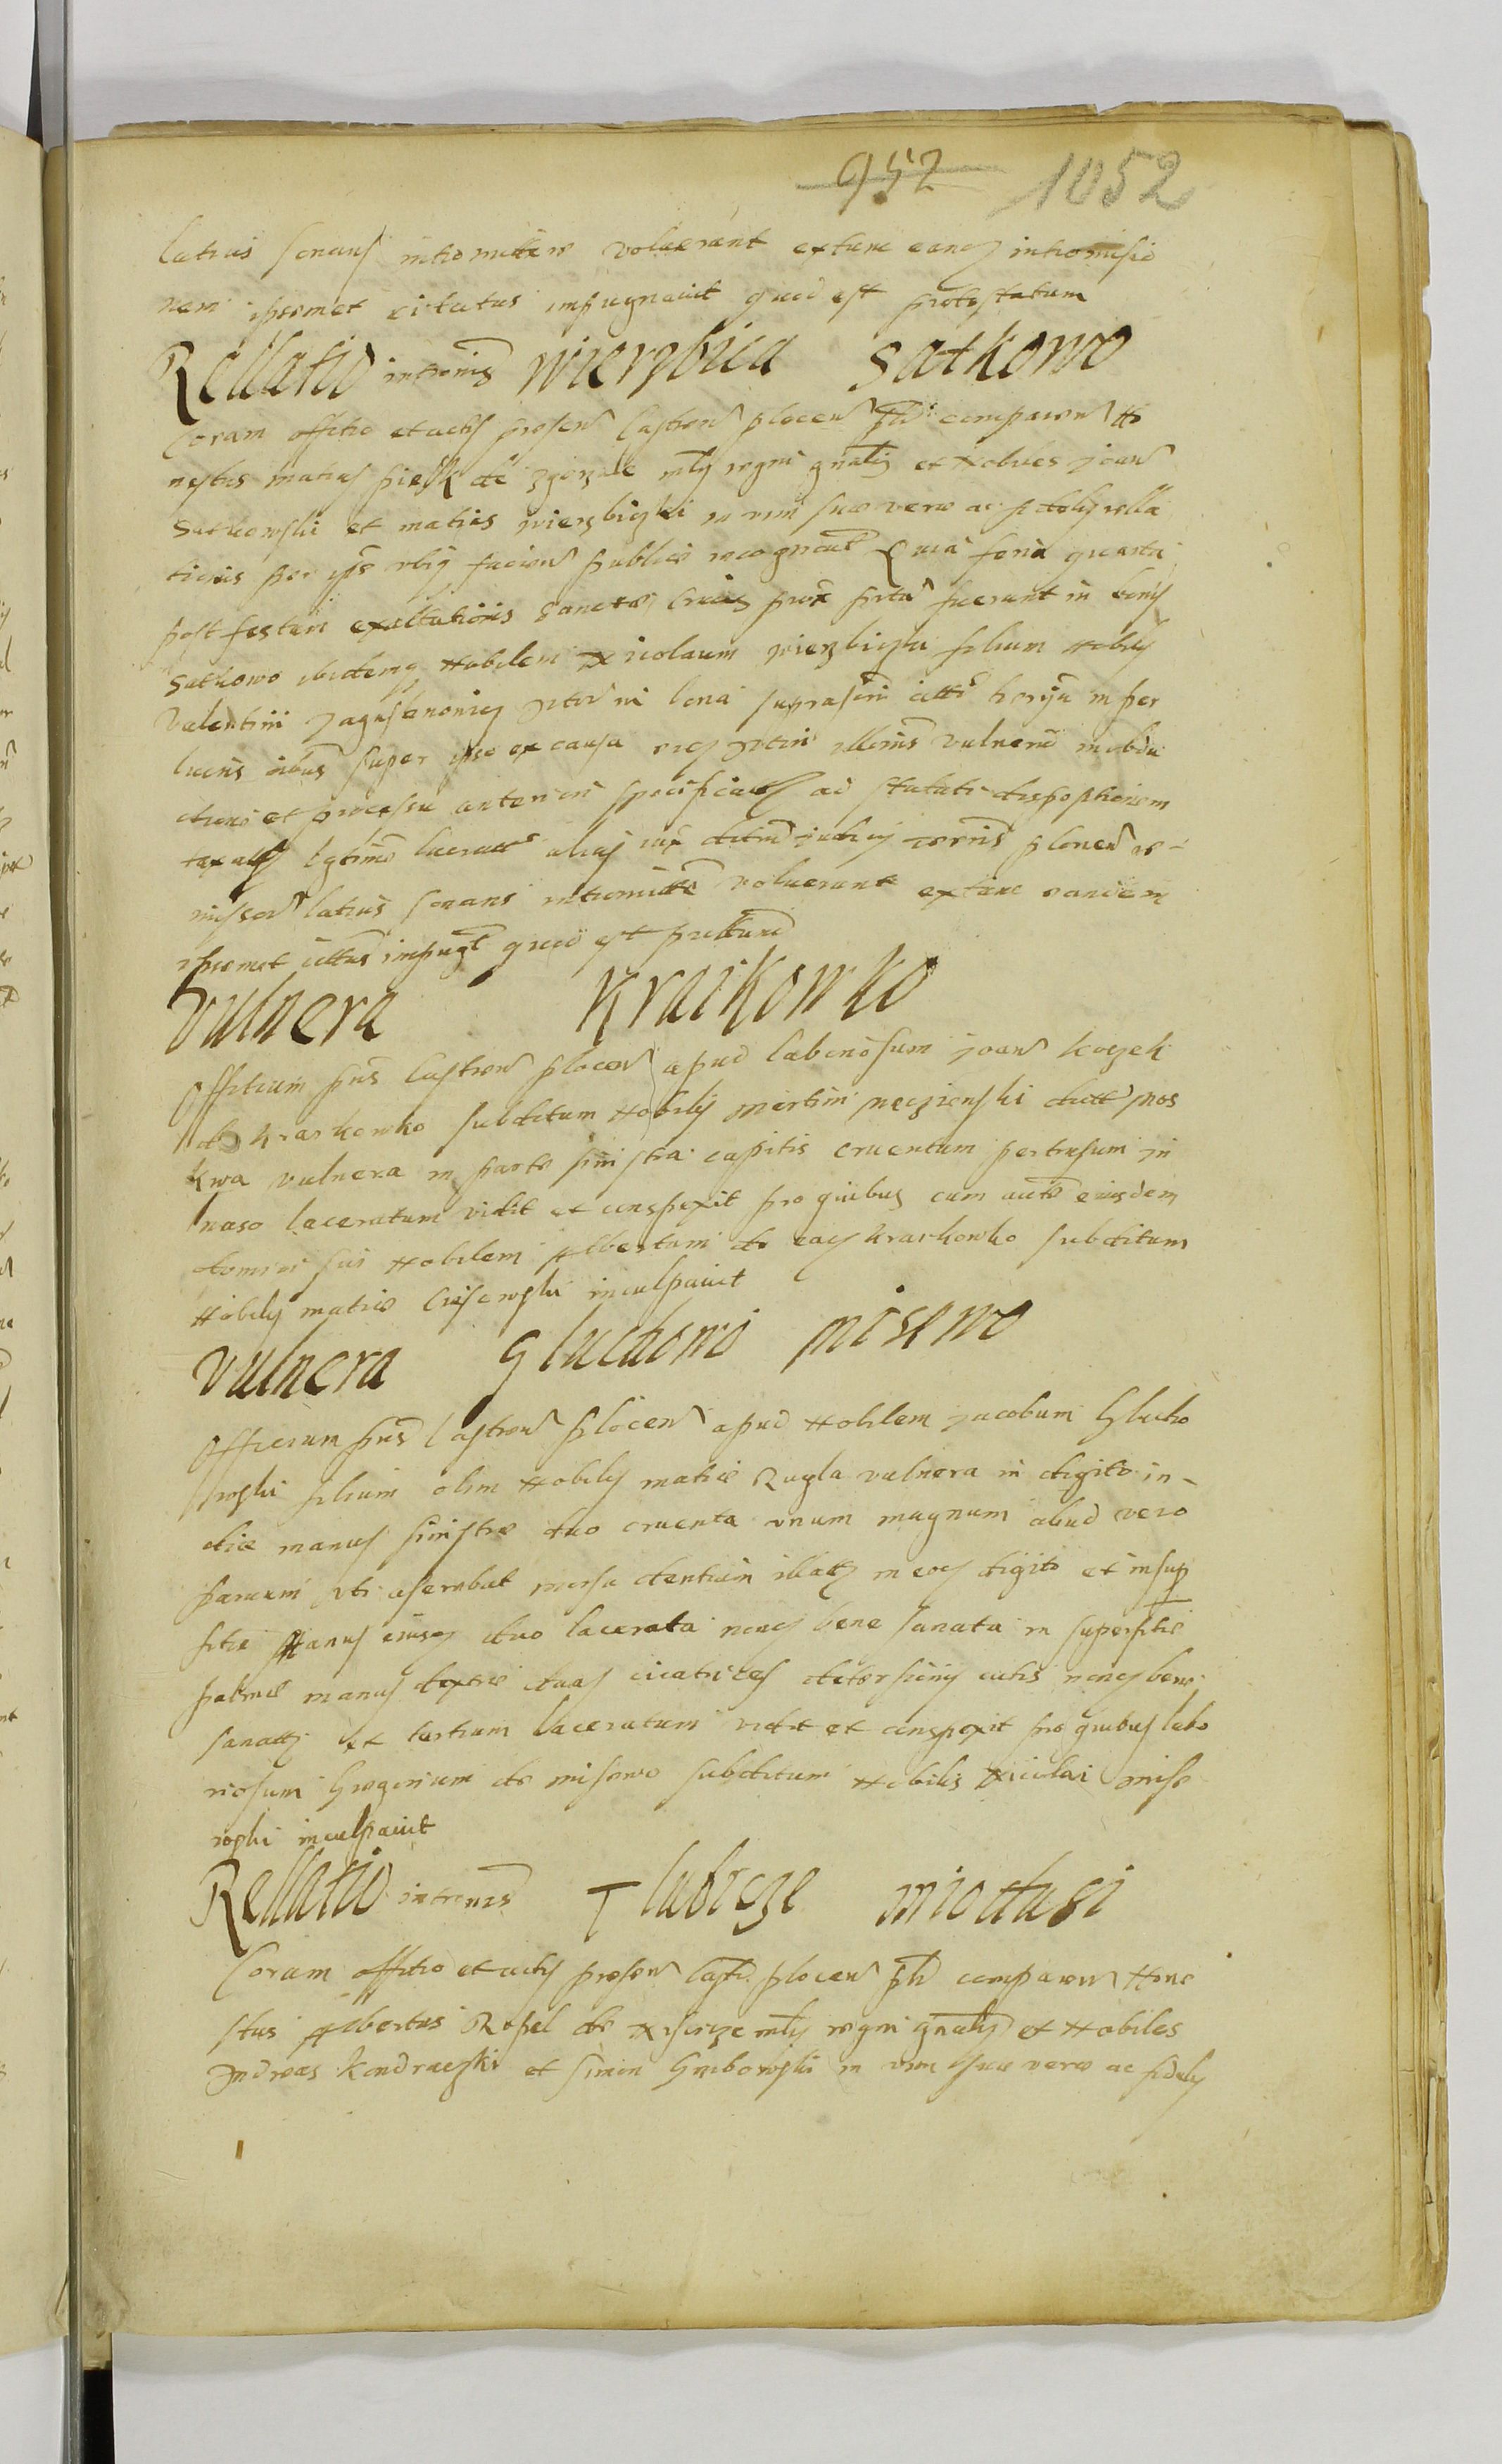 952 1052
latius sonans intromittere voluerant extunc eandem intromissio
nem ipsemet citatus impugnavit quod est protestatum
Rellatio intromis Wierzbica Satkowo
Coram officio et actis presen Castren plocen plr comparen Ho
nestus matias piesk de zgorzale mlis regni gnalis et Nobiles joan
Satkowski et matias wierzbiczki in vim sue vere ac fidelis rella
tionis per ipsos facien publice recognov Quia feria quarta
post festum exaltationis Sancte Crucis prox prta fuerunt in bonis
Satkowo ibidemq Nobilem Nicolaum wierzbiczki filium Nobilis
Valentini in bona
lucris super ipso ex causa vulnerum
et processu anteriori specificatis ad statuti dispositionem
taxatis lgtime lucratis alias iux judicii terris plocen re-
missor latius sonans intromitte voluerant extunc eandem
ipsemet cittus impugt quod est prttum
Vulnera Kraikowko
Officium pns Castren plocen apud laboriosum joan kozek
de kraikowko subditum Nobilis martini
vulnera in parte sinistra capitis cruentum pertusum in
naso laceratum vidit et conspexit pro quibus cum aucte eiusdem
domini sui Nobilem Albertum de eadem kraikowko subditum
Nobilis matie inculpavit
Vulnera Gluchowo Misewo
Officium pns Castren plocen apud Nobilem jacobum Glucho
wski filium olim Nobilis matie Rugla vulnera in digito in-
dice manus sinistre duo cruenta unum magnum aliud vero
parvum uti aserebat morsu dentium illatis in eodem digito et in sup
ficie manus eiusdem duo lacerata nondum bene sanata in superficie
palme manus dextre duas cicatrices cutis nondum bene
sanatis et tertium laceratum vidit et conspexit pro quibus labo
riosum Gregorium de misewo subditum Nobilis Nicolai mise
wski inculpavit
Rellatio intromis Tlubicze Miodusi
Coram officio et actis presen Castr plocen plr comparen Hone
stus Albertus Ropel de mlis regni gnalis et Nobiles
Andreas kendraczki et simon Grabowski in vim sue vere ac fidelis